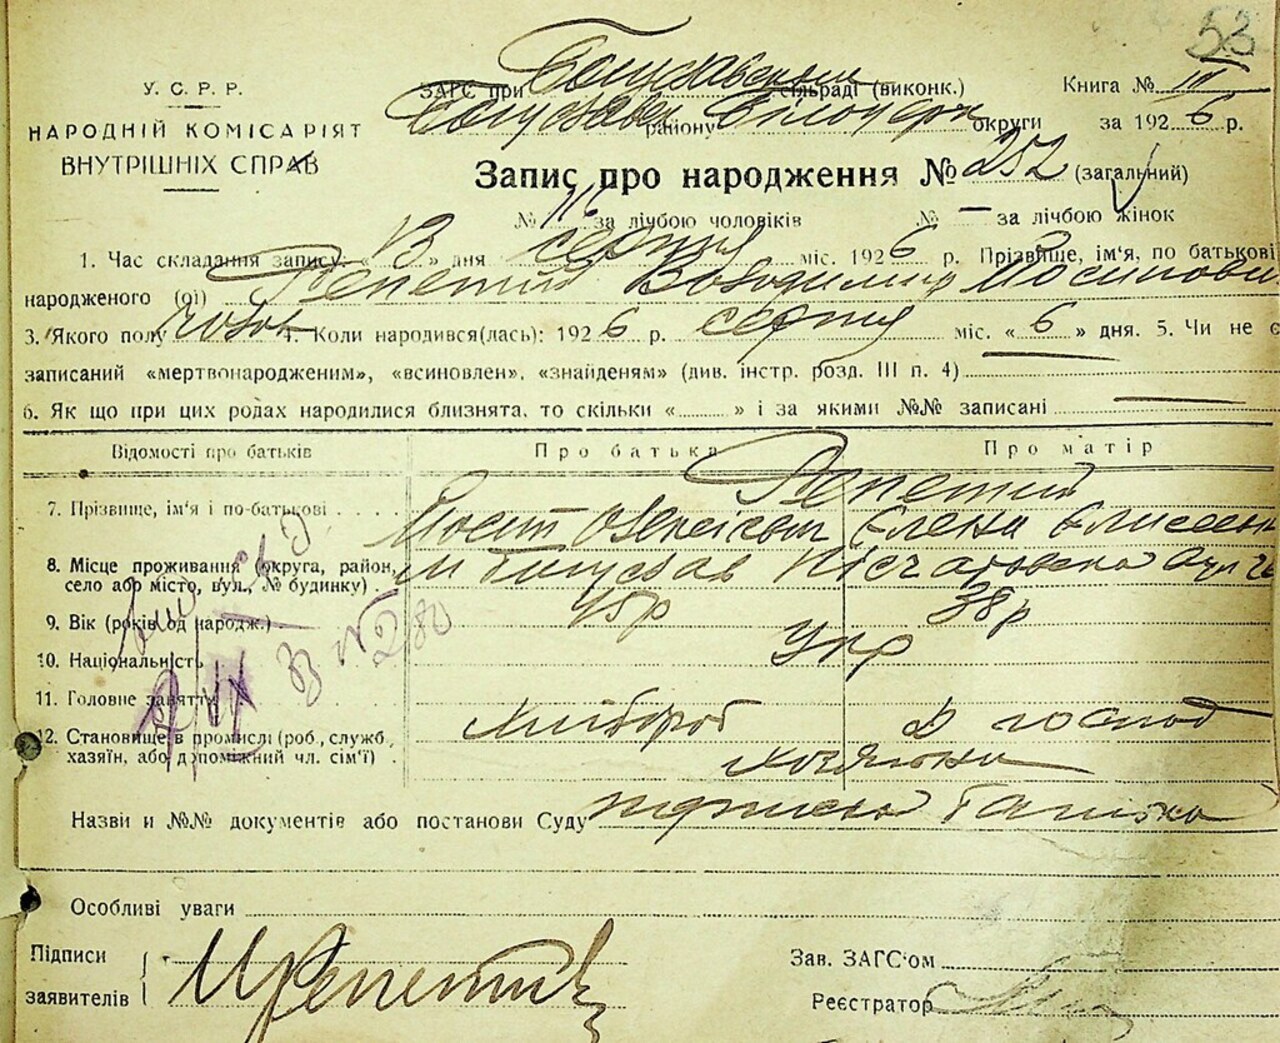 53
У. С. Р. Р.
НАРОДНІЙ КОМІСАРІЯТ
ВНУТРІШНІХ СПРАВ
ЗАГС при Богуславським сільраді (виконк.)
Книга № III
району Білоцерк округи
за 1926 р.
Запис про народження № 252 (загальний)
№ за лічбою чоловіків № — за лічбою жінок
1. Час складання запису: «13» дня серпня міс. 1926 р. Прізвище, ім'я, по батькові
народженого (ої) Репетий Володимир
3. Якого полу чолов 4. Коли народився(лась): 1926 р. серпня міс. «6» дня. 5. Чи не є
записаний «мертвонародженим», «всиновлен», «знайденям» (див. інстр. розд. III п. 4)
6. Як що при цих родах народилися близнята, то скільки «........» і за якими №№ записані
Відомості про батьків Про батька Про матір
7. Прізвище, ім'я і по-батькові . . . . Репетий
Олексієвич Елена
8. Місце проживання (округа, район,
село або місто, вул., № будинку) . м Богуслав
9. Вік (років од народж.) 45р 38р
10. Національність Укр
11. Головне заняття
12. Становище в промислі (роб., служб.,
хазяїн, або допоміжний чл. сім'ї) . Хлібороб д господ
Назви и №№ документів або постанови Суду
Особливі уваги
Підписи
заявителів
Репетий
Зав. ЗАГС'ом
Реєстратор